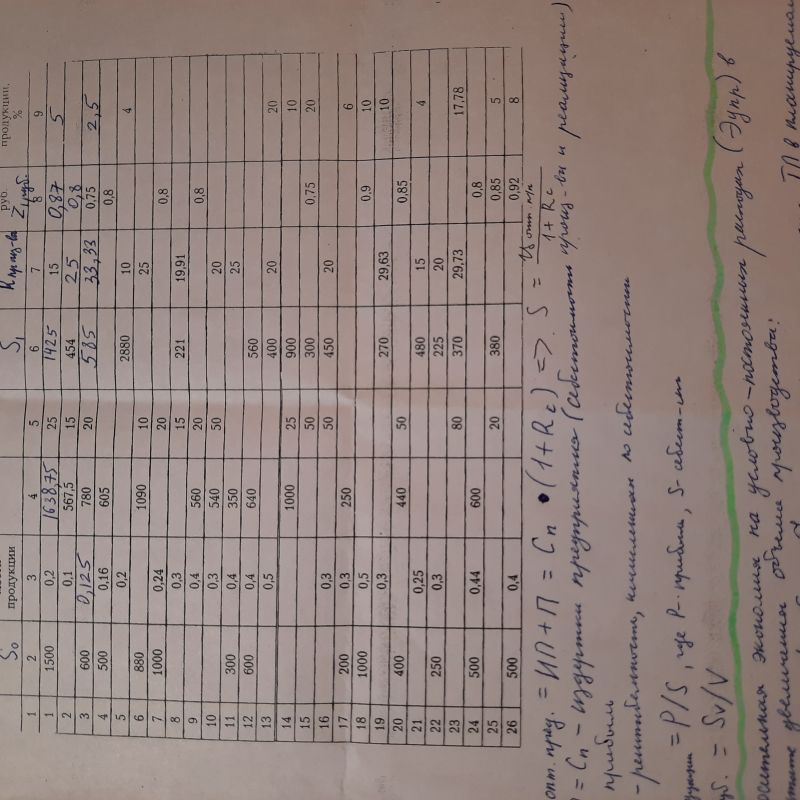 продукции руб. продукции,
%
S₀ S₁ Rпроиз-ва Z₁руб.
1 2 3 4 5 6 7 8 9
1 1500 0,2 1638,75 25 1425 15 0,87 5
2 0,1 567,5 15 454 25 0,8
3 600 0,125 780 20 585 33,33 0,75 2,5
4 500 0,16 605 0,8
5 0,2 2880 10 4
6 880 1090 10 25
7 1000 0,24 20 0,8
8 0,3 15 221 19,91
9 0,4 560 20 0,8
10 0,3 540 50 20
11 300 0,4 350 25
12 600 0,4 640 560
13 0,5 400 20 20
14 1000 25 900 10
15 50 300 0,75 20
16 0,3 50 450 20
17 200 0,3 250 6
18 1000 0,5 0,9 10
19 0,3 270 29,63 10
20 400 440 50 0,85
21 0,25 480 15 4
22 250 0,3 225 20
23 80 370 29,73 17,78
24 500 0,44 600 0,8
25 20 380 0,85 5
26 500 0,4 0,92 8
опт. пред. = ИП + П = Сп • (1+Rс) => S = Цопт. / 1+Rс
= Сп – издержки предприятия (себестоимость произ-ва и реализации)
прибыль
- рентабельность, исчисленная по себестоимости
= P/S, где P- прибыль, S- себест-ть
уб. = Sv/V
экономия на условно-постоянных расходах (Эупр) в
увеличения объема производства:
ТП в планируемом